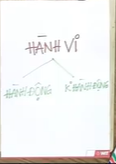 HÀNH VI
HÀNH ĐỘNG K HÀNH ĐỘNG